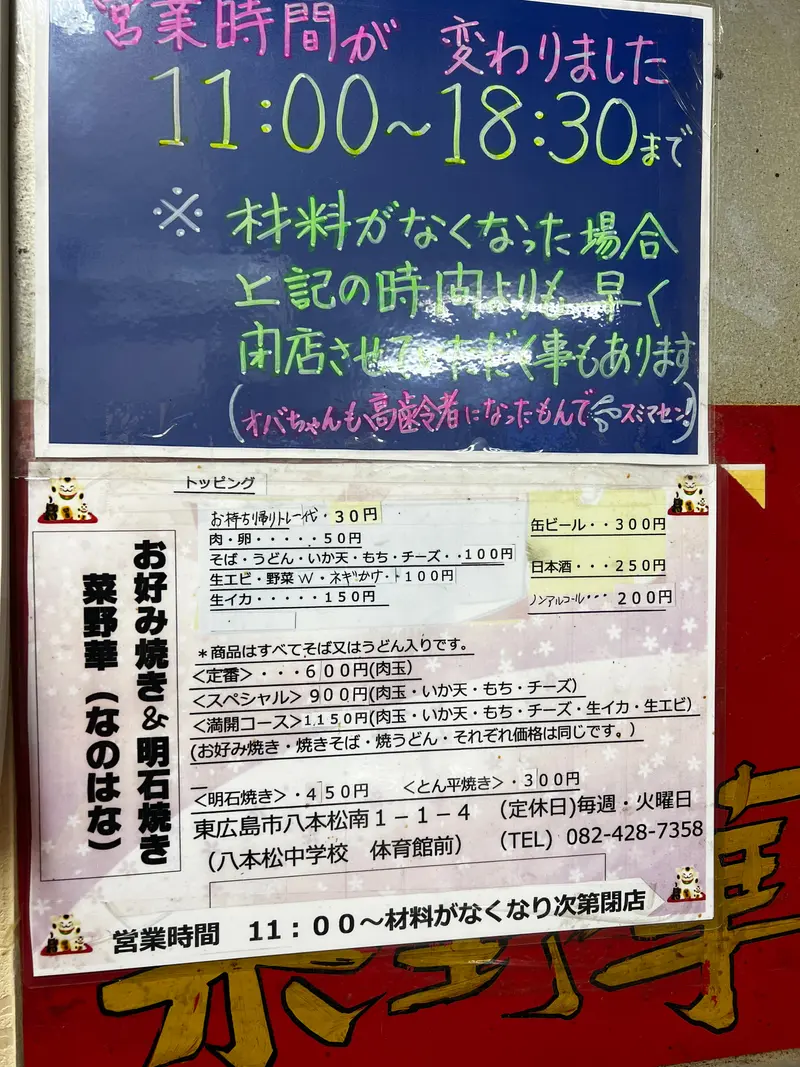 営業時間が 変わりました
11:00～18:30まで
※ 材料がなくなった場合
上記の時間よりも 早く
閉店させていただく事もあります
(オバちゃんも高齢者になったもんで スミマセン!)
トッピング
お持ち帰りトレー代・30円
肉・卵・・・・・50円
そば・うどん・いか天・もち・チーズ・・100円
生エビ・野菜W・ネギかけ・・100円
生イカ・・・・・150円
缶ビール・・300円
日本酒・・・250円
ノンアルコール・・・200円
お好み焼き&明石焼き
菜野華（なのはな）
＊商品はすべてそば又はうどん入りです。
<定番>・・・600円(肉玉)
<スペシャル>900円(肉玉・いか天・もち・チーズ)
<満開コース>1,150円(肉玉・いか天・もち・チーズ・生イカ・生エビ)
(お好み焼き・焼きそば・焼うどん・それぞれ価格は同じです。)
<明石焼き>・450円 <とん平焼き>・300円
東広島市八本松南1－1－4 (定休日)毎週・火曜日
(八本松中学校 体育館前) (TEL) 082-428-7358
営業時間 11：00～材料がなくなり次第閉店
菜野華